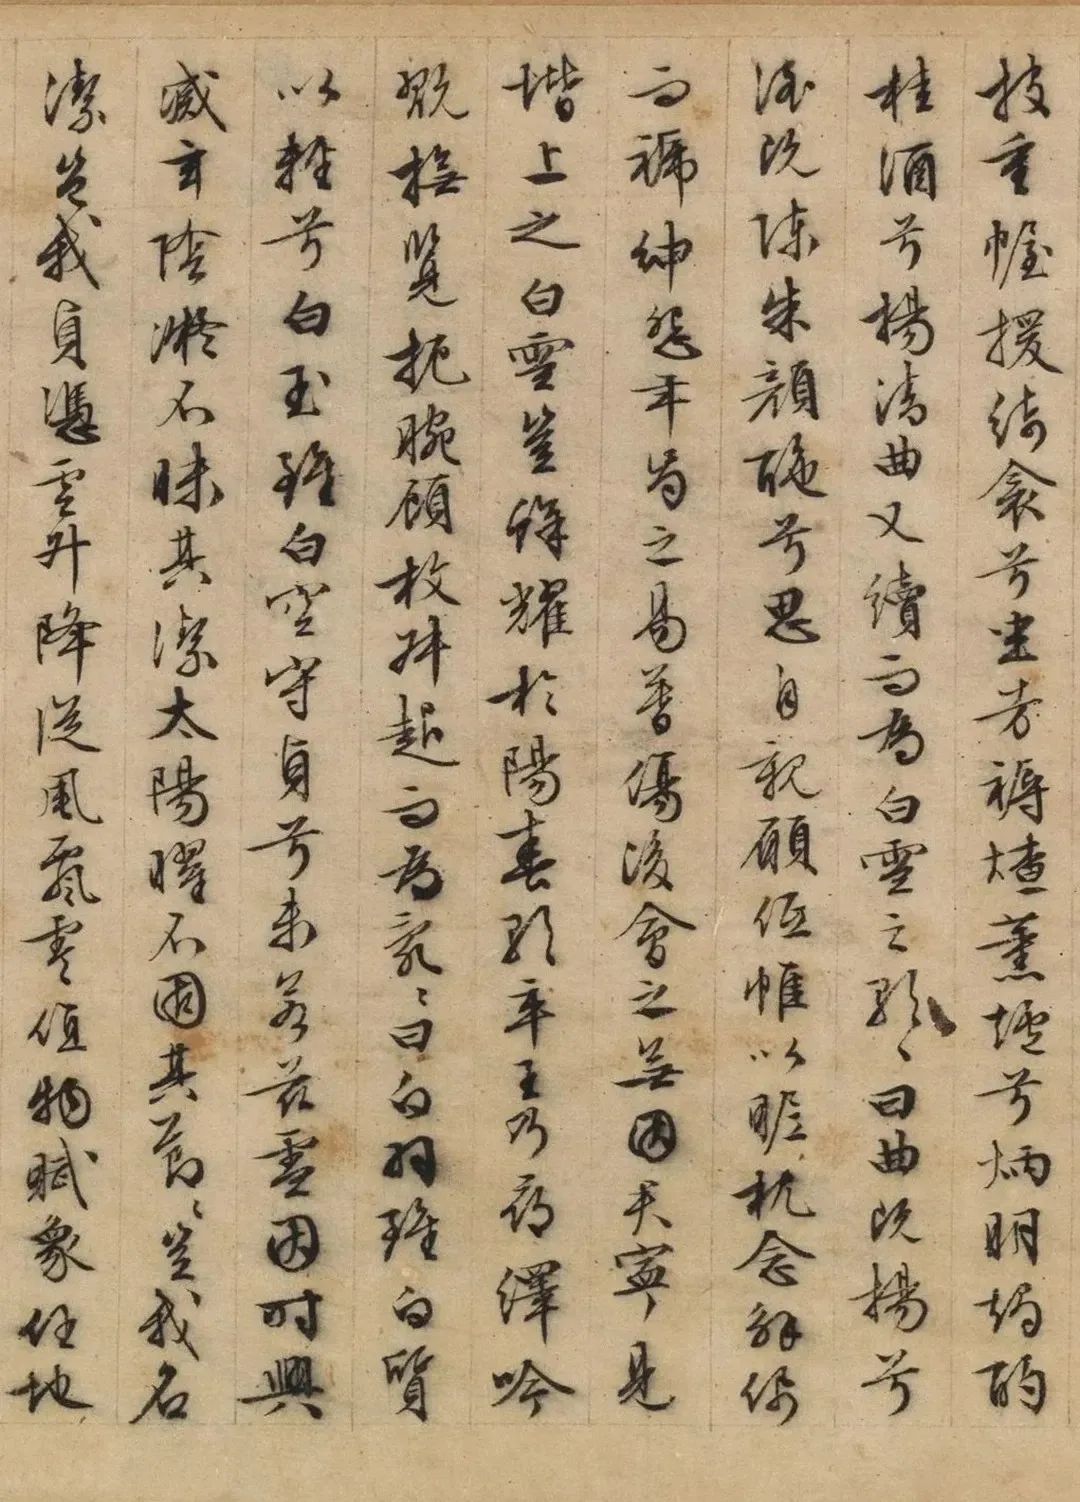 披重幄援綺衾兮坐芳褥燎薰爐兮炳明燭酌
桂酒兮揚清曲又續而為白雪之歌〻曰曲既揚兮
酒既陳朱顏酡兮思自親願低帷以昵枕念解佩
而褫紳怨年歲之易暮傷後會之無因君寧見
階上之白雪豈鮮耀於陽春歌卒王乃尋繹吟
翫撫覽扼腕顧枚叔起而為亂〻曰白羽雖白質
以輕兮白玉雖白空守貞兮未若茲雪因時興
滅玄陰凝不昧其潔太陽曜不固其節〻豈我名
潔豈我貞憑雲升降從風飄零值物賦象任地